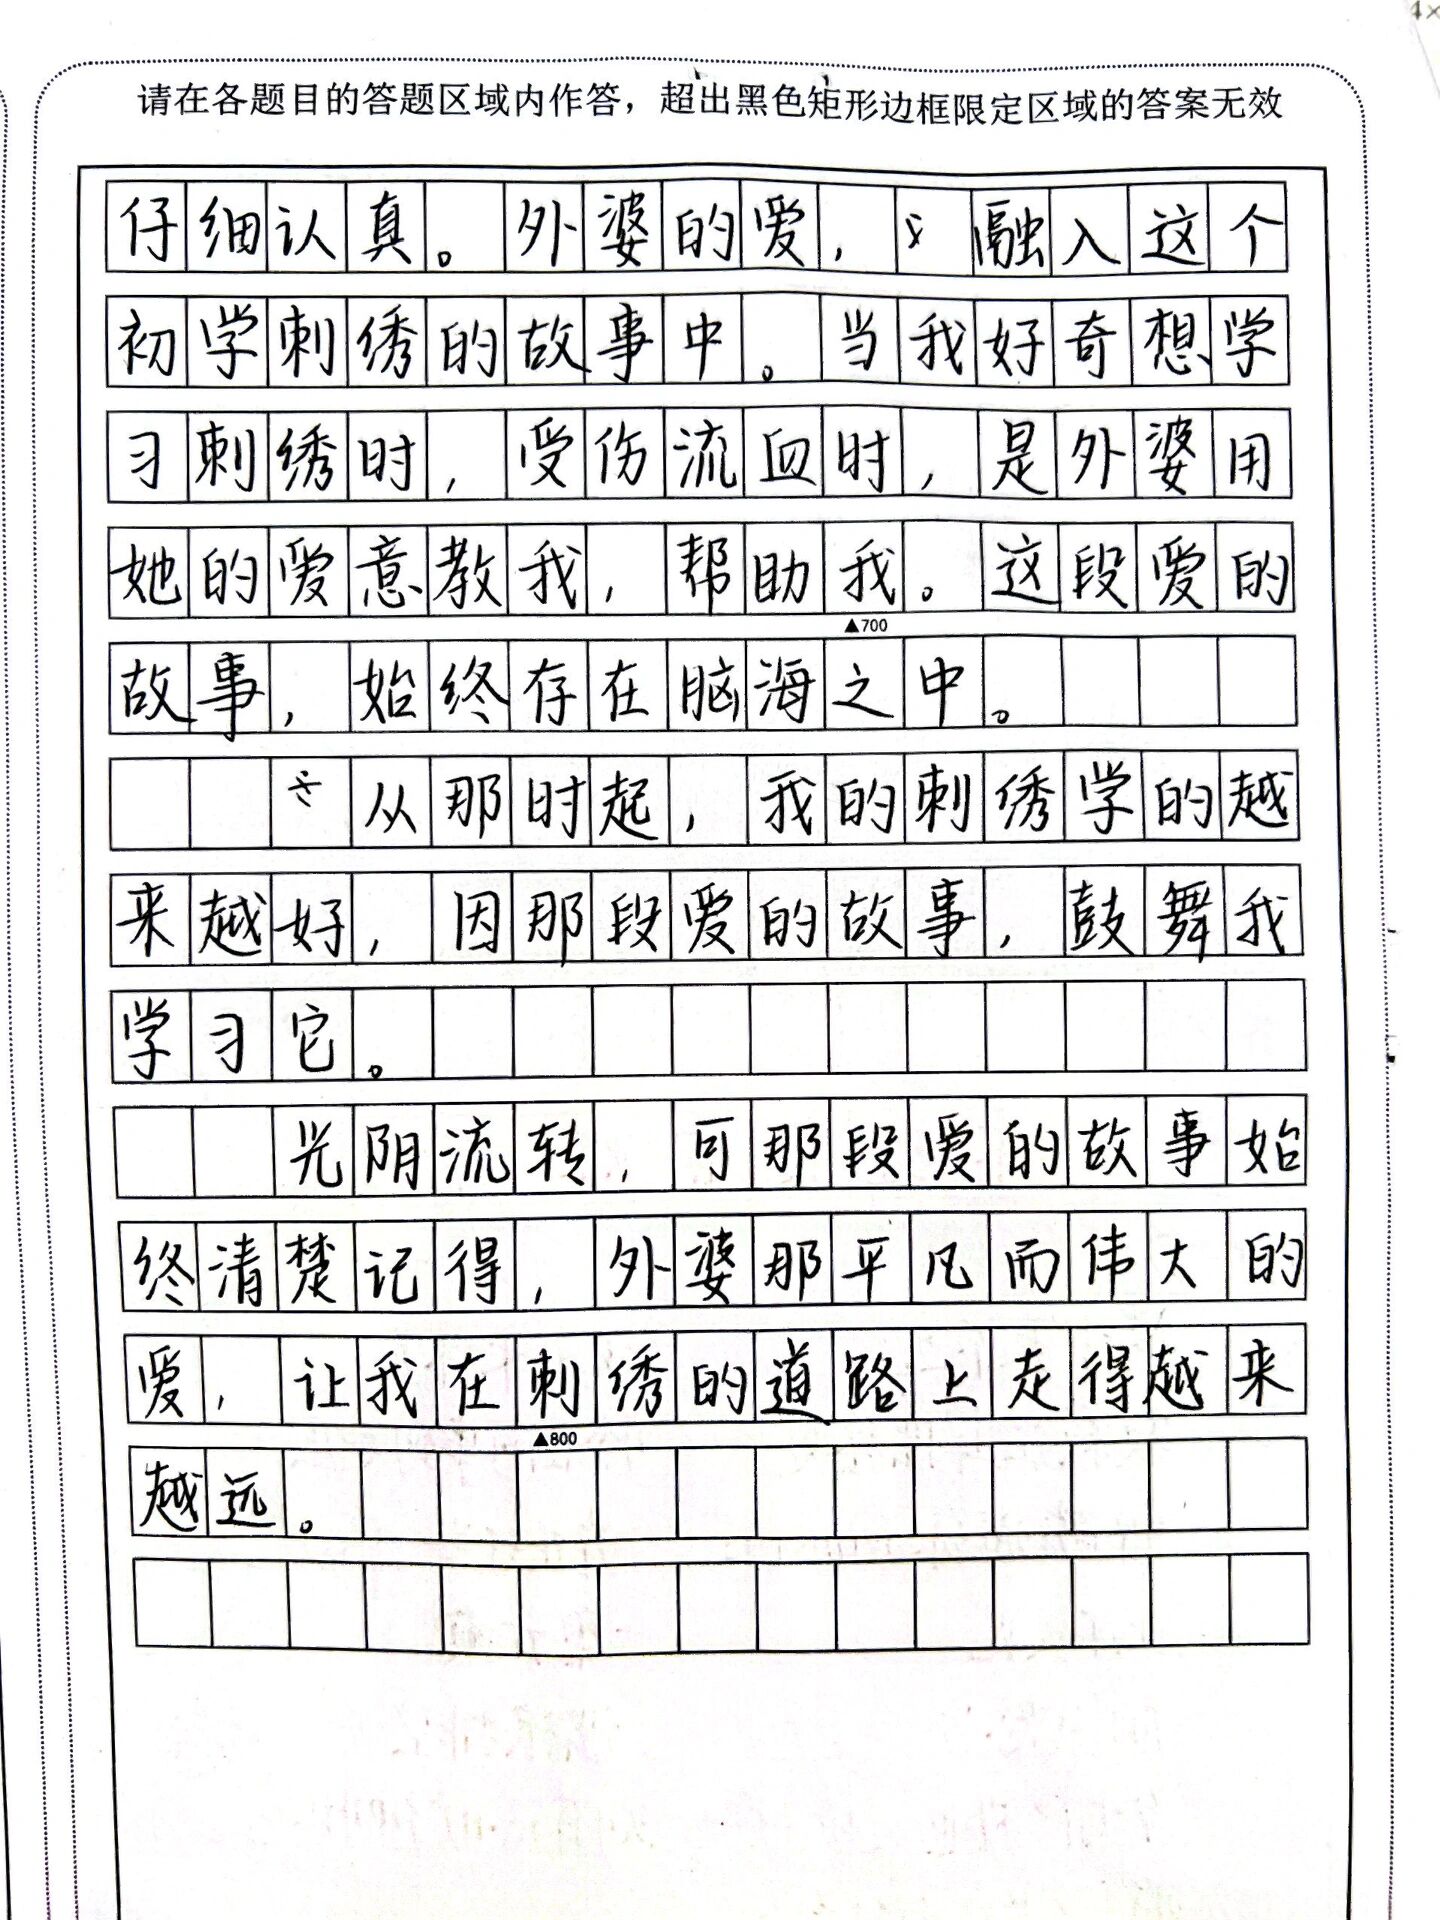 请在各题目的答题区域内作答，超出黑色矩形边框限定区域的答案无效
仔细认真。外婆的爱，融入这个
初学刺绣的故事中。当我好奇想学
习刺绣时，受伤流血时，是外婆用
她的爱意教我，帮助我。这段爱的
▲700
故事，始终存在脑海之中。
从那时起，我的刺绣学的越
来越好，因那段爱的故事，鼓舞我
学习它。
光阴流转，可那段爱的故事始
终清楚记得，外婆那平凡而伟大的
爱，让我在刺绣的道路上走得越来
▲800
越远。